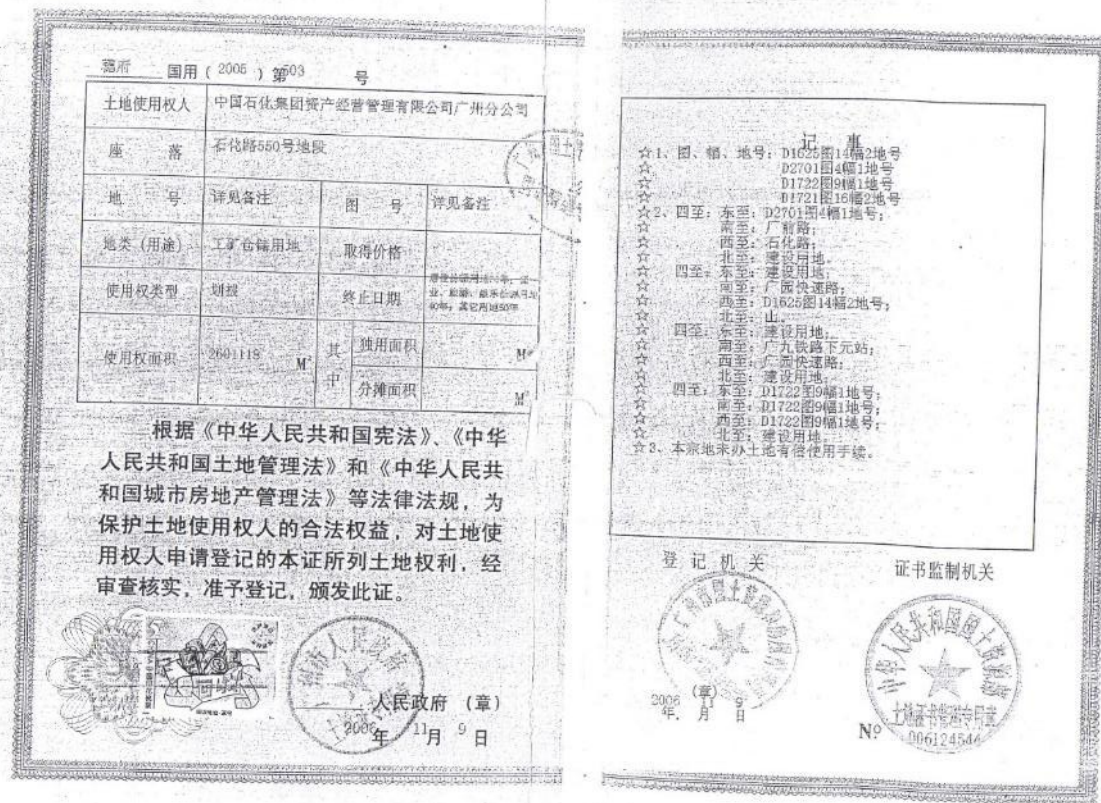 穗府 国用（2005）第503 号
土地使用权人 中国石化集团资产经营管理有限公司广州分公司
座 落 石化路550号地段
地 号 详见备注 图 号 详见备注
地类（用途） 工矿仓储用地 取得价格
使用权类型 划拨 终止日期
40年；其它用地50年
使用权面积 2601118 M² 其中 独用面积 M²
分摊面积 M²
根据《中华人民共和国宪法》、《中华
人民共和国土地管理法》和《中华人民共
和国城市房地产管理法》等法律法规，为
保护土地使用权人的合法权益，对土地使
用权人申请登记的本证所列土地权利，经
审查核实，准予登记，颁发此证。
人民政府 （章）
2006年 11月 9日
记 事
☆1、图、幅、地号：D1625图14幅2地号
☆ D2701图4幅1地号
☆ D1722图9幅1地号
☆ D1721图16幅2地号
☆2、四至：东至：D2701图4幅1地号；
☆ 南至：厂前路；
☆ 西至：石化路；
☆ 北至：建设用地。
☆ 四至：东至：建设用地；
☆ 南至：广园快速路；
☆ 西至：D1625图14幅2地号；
☆ 北至：山。
☆ 四至：东至：建设用地；
☆ 南至：广九铁路下元站；
☆ 西至：广园快速路；
☆ 北至：建设用地。
☆ 四至：东至：D1722图9幅1地号；
☆ 南至：D1722图9幅1地号；
☆ 西至：D1722图9幅1地号；
☆ 北至：建设用地。
☆3、本宗地未办土地有偿使用手续。
登 记 机 关
（章）
2006年 11月 9日
证书监制机关
中华人民共和国国土资源部
土地证书管理专用章
№ 006124544